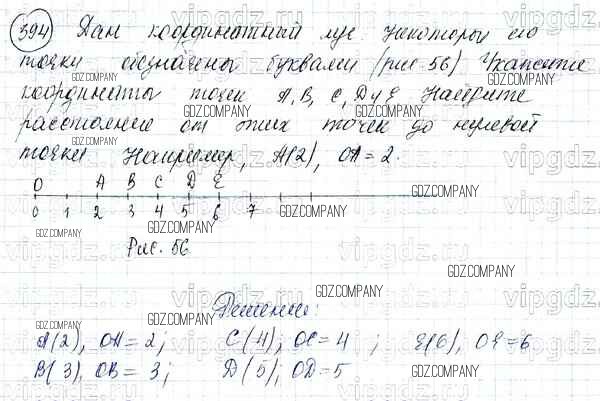 394 Дан координатный луч. Некоторые его
точки обозначены буквами (рис 56) Укажите
координаты точек A, B, C, D и E Найдите
расстояние от этих точек до нулевой
точки Например, A(2), OA = 2.
O A B C D E
0 1 2 3 4 5 6 7
Рис. 56
Решение:
A(2), OA = 2; C(4); OC = 4 ; E(6), OE = 6
B(3), OB = 3; D(5); OD = 5
GDZ.COMPANY
vipgdz.ru